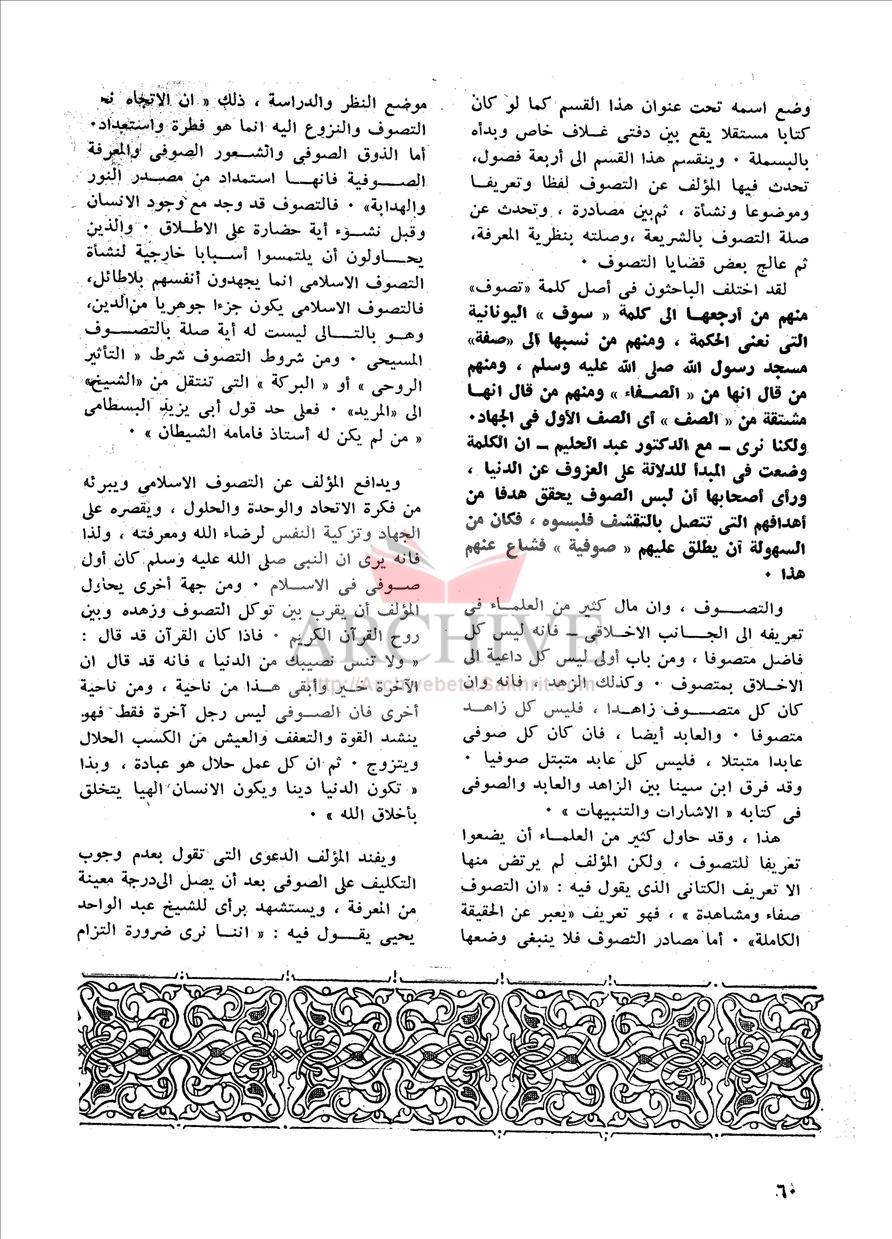 وضع اسمه تحت عنوان هذا القسم كما لو كان
كتابا مستقلا يقع بين دفتى غلاف خاص وبدأه
بالبسملة ٠ وينقسم هذا القسم الى أربعة فصول،
تحدث فيها المؤلف عن التصوف لفظا وتعريفا
وموضوعا ونشأة ، ثم بين مصادرة ، وتحدث عن
صلة التصوف بالشريعة ،وصلته بنظرية المعرفة،
ثم عالج بعض قضايا التصوف ٠
لقد اختلف الباحثون فى أصل كلمة «تصوف»
منهم من أرجعها الى كلمة « سوف » اليونانية
التى تعنى الحكمة ، ومنهم من نسبها الى «صفة»
مسجد رسول الله صلى الله عليه وسلم ، ومنهم
من قال انها من « الصفاء » ومنهم من قال انها
مشتقة من « الصف » أى الصف الأول فى الجهاد٠
ولكنا نرى – مع الدكتور عبد الحليم – ان الكلمة
وضعت فى المبدأ للدلالة على العزوف عن الدنيا ،
ورأى أصحابها أن لبس الصوف يحقق هدفا من
أهدافهم التى تتصل بالتقشف فلبسوه ، فكان من
السهولة أن يطلق عليهم « صوفية » فشاع عنهم
هذا ٠
والتصوف ، وان مال كثير من العلماء فى
تعريفه الى الجانب الاخلاقى – فانه ليس كل
فاضل متصوفا ، ومن باب أولى ليس كل داعية الى
الاخلاق بمتصوف ٠ وكذلك الزهد ، فانه وان
كان كل متصوف زاهدا ، فليس كل زاهد
متصوفا ٠ والعابد أيضا ، فان كان كل صوفى
عابدا متبتلا ، فليس كل عابد متبتل صوفيا ٠
وقد فرق ابن سينا بين الزاهد والعابد والصوفى
فى كتابه « الاشارات والتنبيهات » ٠
هذا ، وقد حاول كثير من العلماء أن يضعوا
تعريفا للتصوف ، ولكن المؤلف لم يرتض منها
الا تعريف الكتانى الذى يقول فيه : «ان التصوف
صفاء ومشاهدة » ، فهو تعريف «يعبر عن الحقيقة
الكاملة» ٠ أما مصادر التصوف فلا ينبغى وضعها
موضع النظر والدراسة ، ذلك « ان الاتجاه نح
التصوف والنزوع اليه انما هو فطرة واستعداد٠
أما الذوق الصوفى والشعور الصوفى والمعرفة
الصوفية فانها استمداد من مصدر النور
والهداية» ٠ فالتصوف قد وجد مع وجود الانسان
وقبل نشوء أية حضارة على الاطلاق ٠ والذين
يحاولون أن يلتمسوا أسبابا خارجية لنشأة
التصوف الاسلامى انما يجهدون أنفسهم بلاطائل،
فالتصوف الاسلامى يكون جزءا جوهريا من الدين،
وهو بالتالى ليست له أية صلة بالتصوف
المسيحى ٠ ومن شروط التصوف شرط « التأثير
الروحى » أو « البركة » التى تنتقل من «الشيخ»
الى «المريد» ٠ فعلى حد قول أبى يزيد البسطامى
« من لم يكن له أستاذ فامامه الشيطان » ٠
ويدافع المؤلف عن التصوف الاسلامى ويبرئه
من فكرة الاتحاد والوحدة والحلول ، ويقصره على
الجهاد وتزكية النفس لرضاء الله ومعرفته ، ولذا
فانه يرى ان النبى صلى الله عليه وسلم كان أول
صوفى فى الاسلام ٠ ومن جهة أخرى يحاول
المؤلف أن يقرب بين توكل التصوف وزهده وبين
روح القرآن الكريم ٠ فاذا كان القرآن قد قال :
« ولا تنس نصيبك من الدنيا » فانه قد قال ان
الآخرة خير وأبقى هذا من ناحية ، ومن ناحية
أخرى فان الصوفى ليس رجل آخرة فقط فهو
ينشد القوة والتعفف والعيش من الكسب الحلال
ويتزوج ٠ ثم ان كل عمل حلال هو عبادة ، وبذا
« تكون الدنيا دينا ويكون الانسان الهيا يتخلق
بأخلاق الله » ٠
ويفند المؤلف الدعوى التى تقول بعدم وجوب
التكليف على الصوفى بعد أن يصل الى درجة معينة
من المعرفة ، ويستشهد برأى للشيخ عبد الواحد
يحيى يقول فيه : « اننا نرى ضرورة التزام
ARCHIVE
http://Archivebeta.Sakhrit.com
٦٠